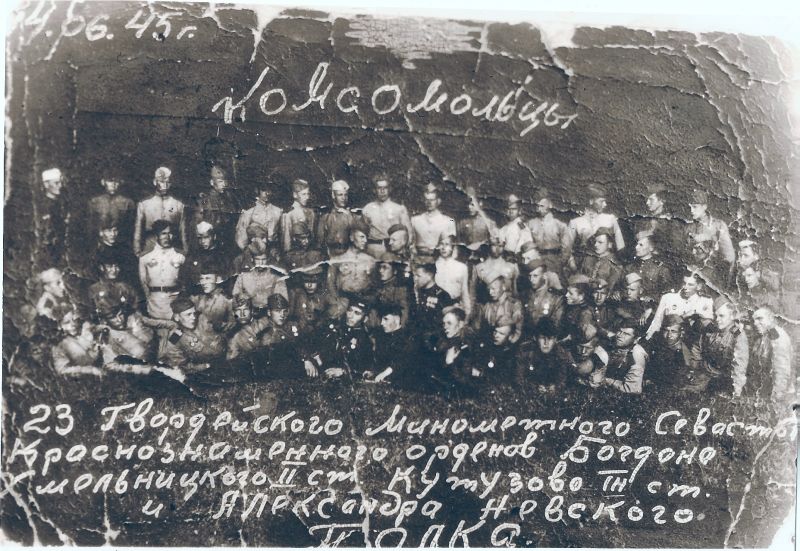 4.06.45г.
Комсомольцы
23 Гвордейского Минометного Севасто
Краснознаменного орденов Богдана
Хмельницкого II ст. Кутузово III ст.
и Александра Невского.
Полка.